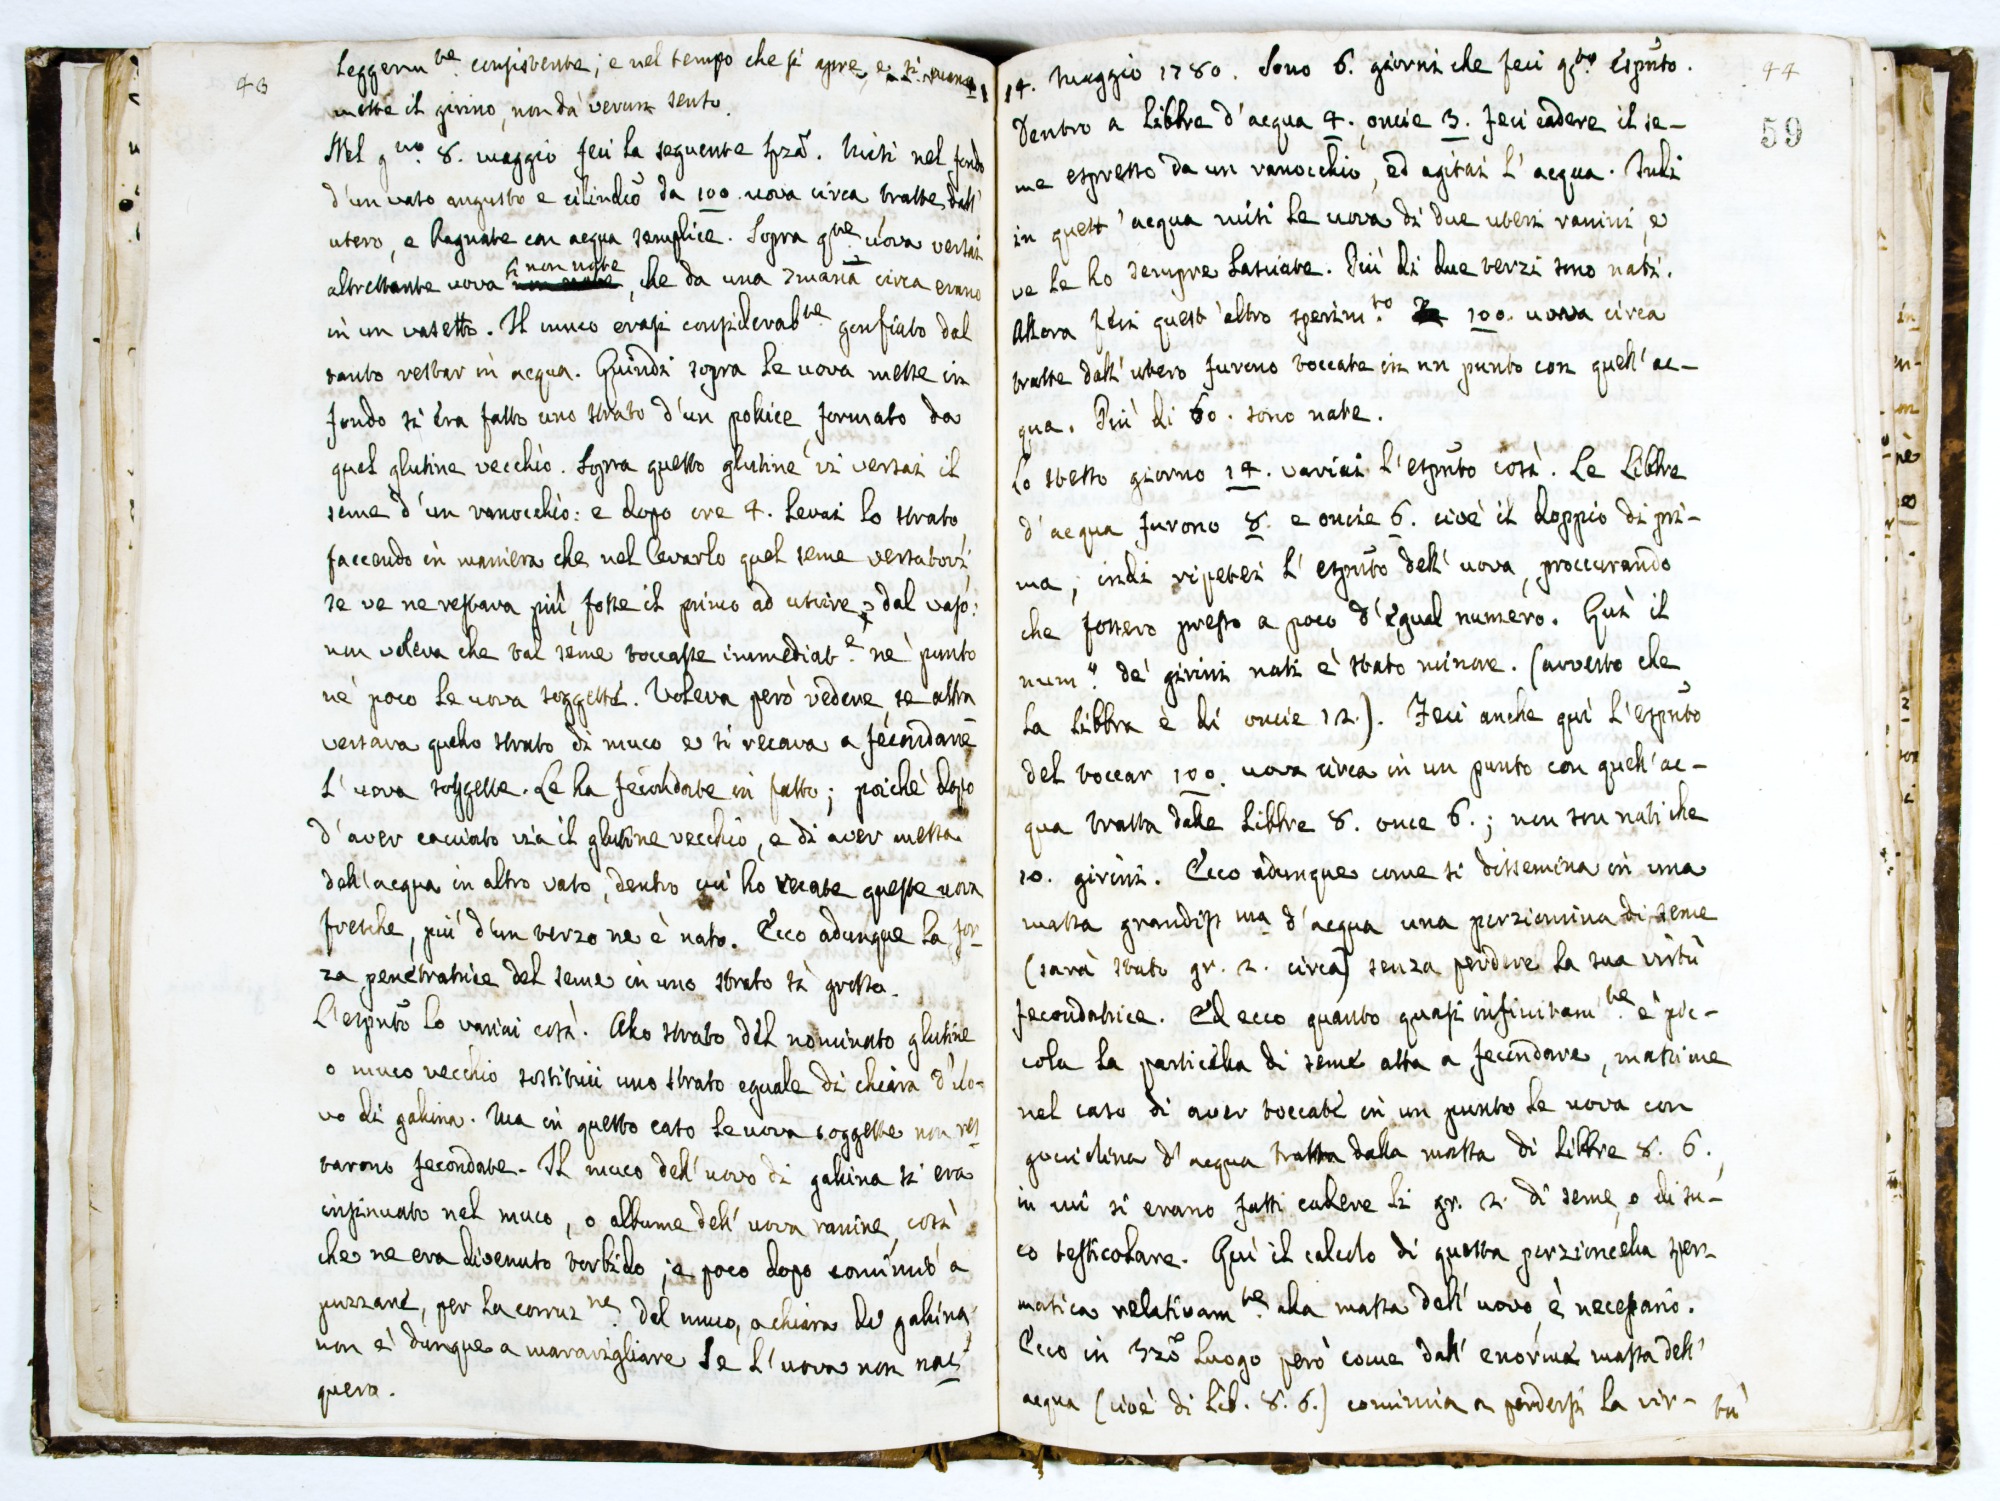 43
leggerm.te consistente; e nel tempo che si apre, e si
mette il girino, non dà verun sento.
Nel g.no 8. maggio feci la seguente spzã. Misi nel fondo
d'un vaso angusto e cilindco da 100. uova circa tratte dall'
utero, e bagnate con acqua semplice. Sopra q.te uova versai
altrettante uova non nate, che da una 7mana circa erano
in un vasetto. Il muco erasi considerab.te gonfiato dal
tanto restar in acqua. Quindi sopra le uova messe in
fondo si era fatto uno strato d'un pollice formato da
quel glutine vecchio. Sopra questo glutine vi versai il
seme d'un ranocchio: e dopo ore 4. levai lo strato
faccendo in maniera che nel levarlo quel seme versatovi,
se ve ne restava più, fosse il primo ad uscire dal vaso:
non voleva che tal seme toccasse immediat.e nè punto
nè poco le uova soggette. Voleva però vedere se attra
versava quello strato di muco e si recava a fecondare
l'uova soggette. Le ha fecondate in fatto; poichè dopo
d'aver cacciato via il glutine vecchio, e di aver messa
dell'acqua in altro vaso, dentro cui ho recate queste uova
fresche, più d'un terzo ne è nato. Ecco adunque la for-
za penetratrice del seme in uno strato sì grosso.
L'esprṽto lo variai così. Allo strato del nominato glutine
o muco vecchio sostituii uno strato eguale di chiara d'uo-
vo di gallina. Ma in questo caso le uova soggette non res-
tarono fecondate. Il muco dell'uovo di gallina si era
insinuato nel muco, o albume dell'uova ranine, così
che ne era divenuto torbido; e poco dopo cominciò a
puzzare, per la corruz.ne del muco, o chiara di gallina;
non è dunque a maravigliare se l'uova non nac-
quero.
44
59
14. Maggio 1780. Sono 6. giorni che feci q.to Esprṽto.
Dentro a libbre d'acqua 4., oncie 3. feci cadere il se-
me espresso da un ranocchio, ed agitai l'acqua. Indi
in quest'acqua misi le uova di due uteri ranini, e
ve le ho sempre lasciate. Più di due terzi sono nati.
Allora feci quest'altro sperim.to 100. uova circa
tratte dall'utero furono toccate in un punto con quell'ac-
qua. Più di 60. sono nate.
Lo stesso giorno 14. variai l'esprṽto così. Le libbre
d'acqua furono 8. e oncie 6. cioè il doppio di pri-
ma; indi ripetei l'esprṽto dell'uova, proccurando
che fossero presso a poco d'egual numero. Quì il
num.o de' girini nati è stato minore. (avverto che
la libbra è di oncie 12.). Feci anche quì l'esprṽto
del toccar 100. uova circa in un punto con quell'ac-
qua tratta dalle libbre 8. once 6.; non son nati che
10. girini. Ecco adunque come si dissemina in una
massa grandiss.ma d'acqua una porzioncina di seme
(sarà stato gr. 2. circa) senza perdere la sua virtù
fecondatrice. Ed ecco quanto quasi infinitam.te è pic-
cola la particella di seme atta a fecondare, massime
nel caso di aver toccate in un punto le uova con
gocciolina d'acqua tratta dalla massa di libbre 8. 6.,
in cui si erano fatti cadere li gr. 2. di seme, o di su-
co testicolare. Quì il calcolo di questa porzioncella sper-
matica relativam.te alla massa dell'uovo, è necessario.
Ecco in 3zo luogo però come dall'enorme massa dell'
acqua (cioè di lib. 8. 6.) comincia a perdersi la vir-
tù